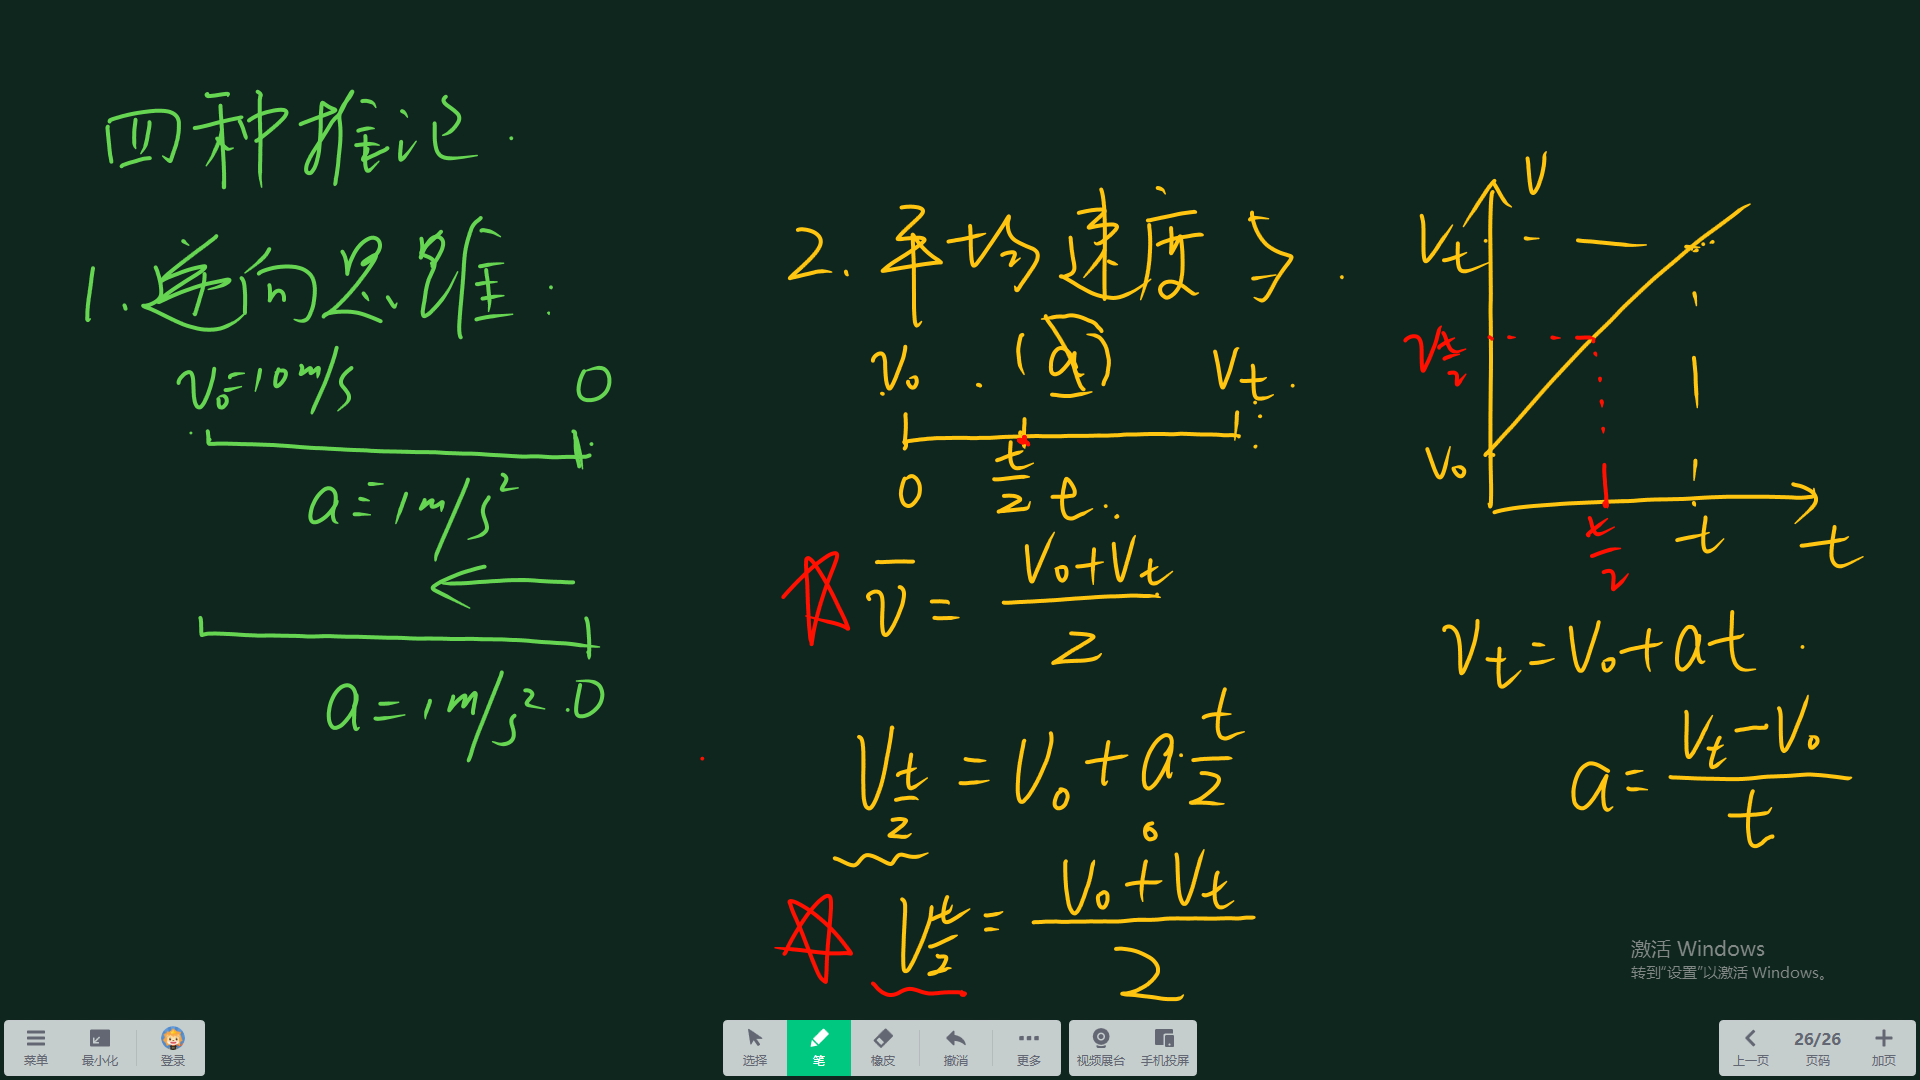 四种推论.
1.逆向思维:
v₀=10m/s 0
a=1m/s²
a=1m/s² 0
2.平均速度
v₀ (a) Vt
0 t/2 t
v̄ = (V₀+Vt)/2
V t/2 = V₀+a·t/2
V t/2 = (V₀+Vt)/2
V
Vt
V t/2
V₀
t/2 t t
Vt=V₀+at
a=(Vt-V₀)/t
激活 Windows
转到“设置”以激活 Windows。
菜单 最小化 登录
选择 笔 橡皮 撤消 更多
视频展台 手机投屏
上一页 26/26 页码 加页